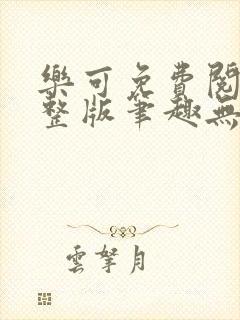 樂可免費閱
整版筆趣無
雲拏月